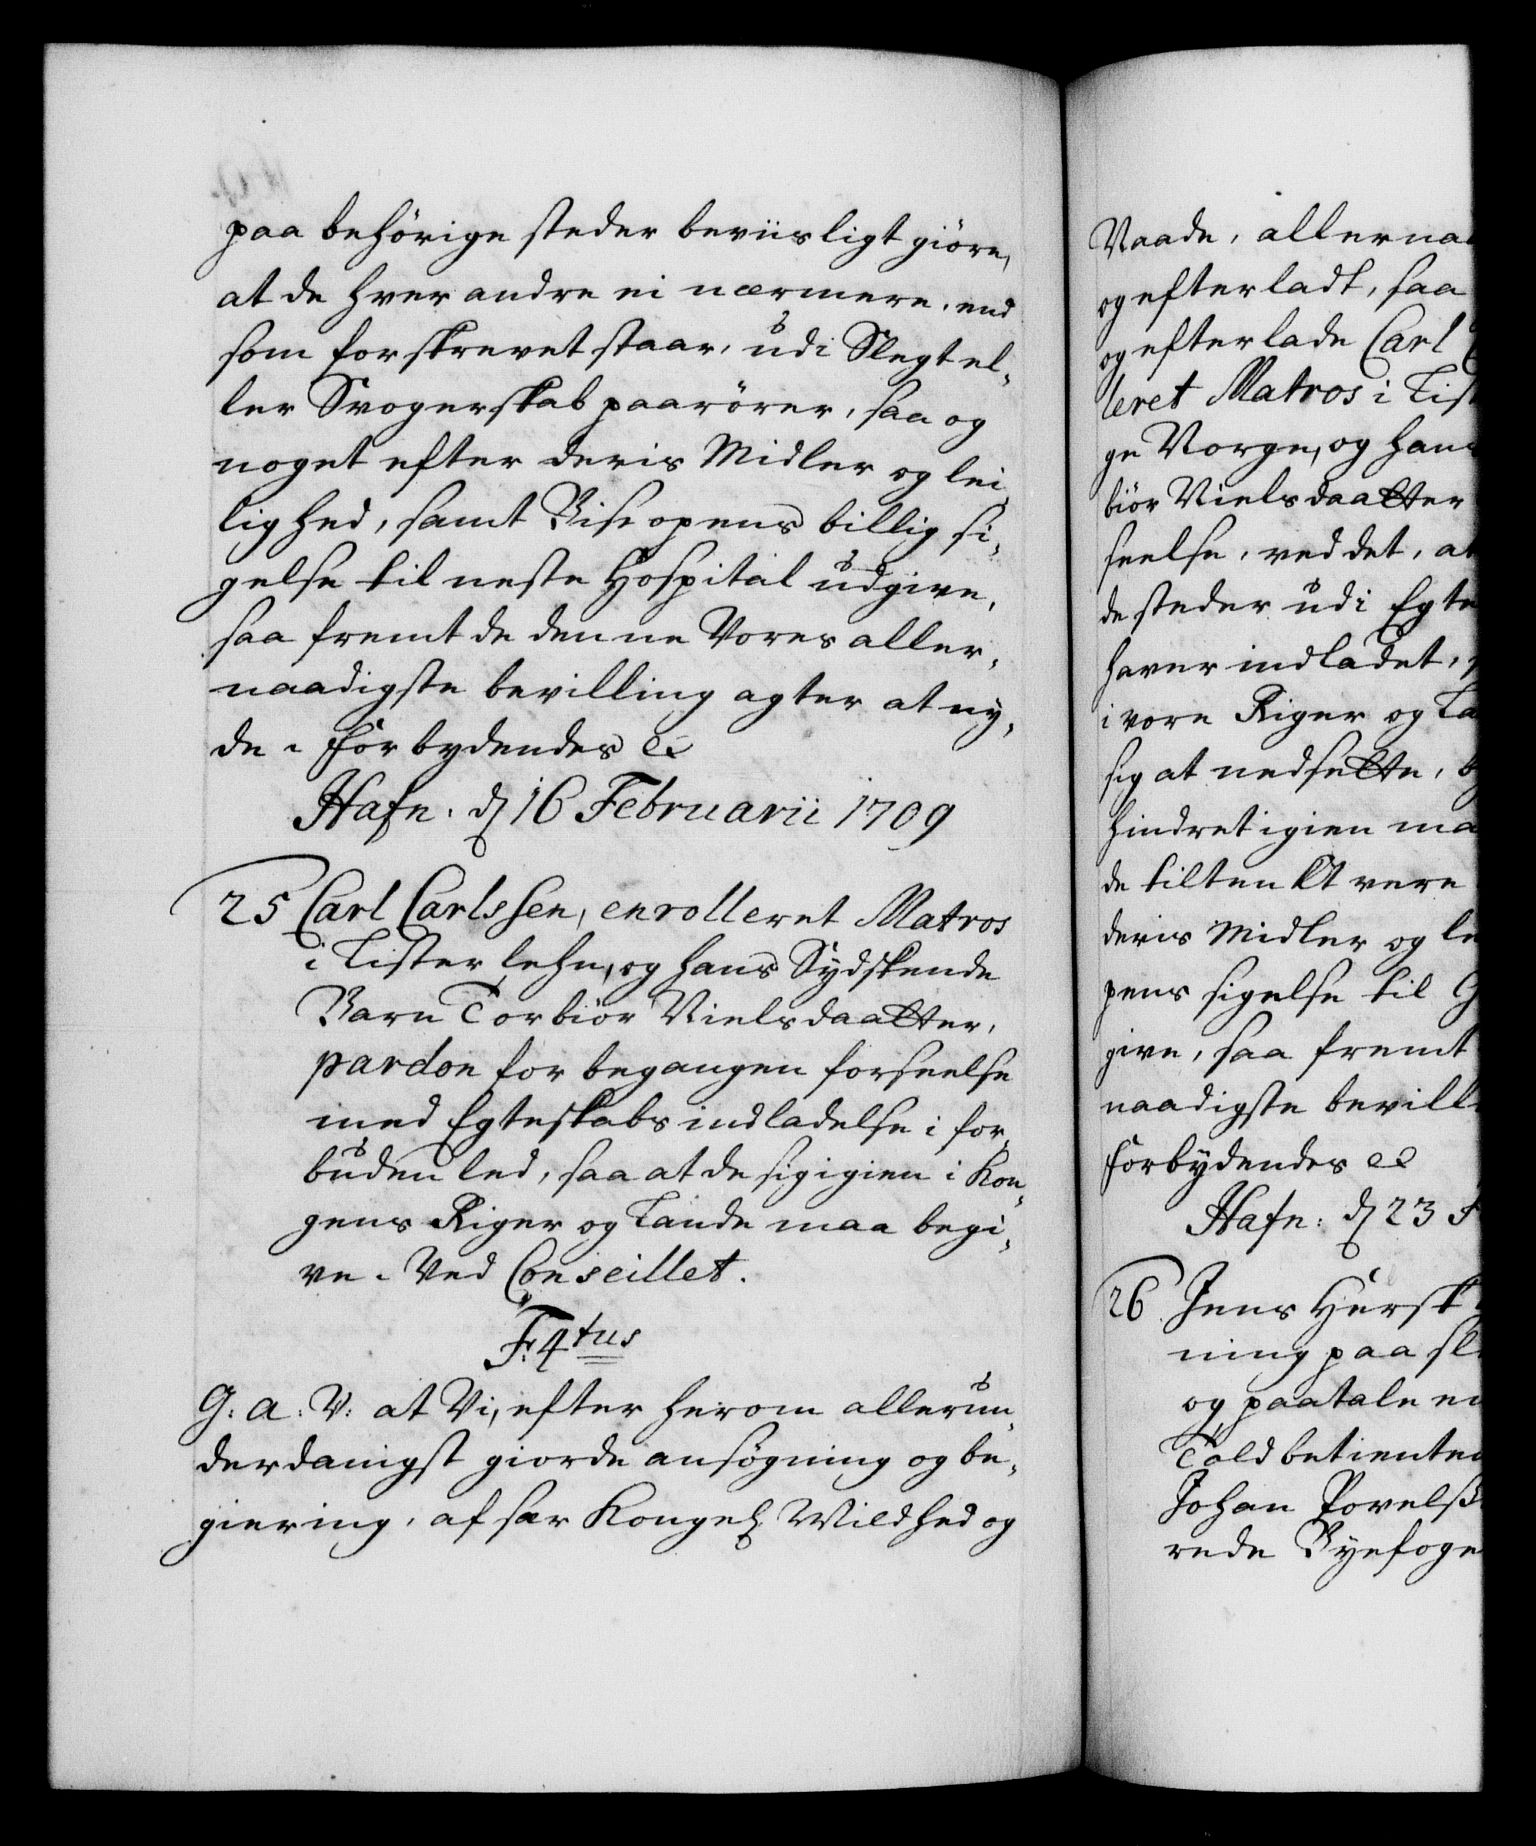 paa behörige steder beviisligt giöre,
at de hverandre ei nærmere, end
som forskrevet staar, udi Slegt el-
ler Svogerskab paarörer, saa og
noget efter deris Midler og lei-
lighed, samt Biscopens billig si-
gelse til neste Hospital udgive,
saa fremt de denne Vores aller-
naadigste bevilling agter at ny-
de. Forbydendes &c
Hafn. d 16 Februarii 1709
25 Carl Carlssen, enrolleret Matros
i Lister Lehn, og hans Sydskende
Barn Torbiör Nielsdaatter,
pardon for begangen forseelse
med Egteskabs indladelse i for-
buden led, saa at de sig igien i Kon-
gens Riger og Lande maa begi-
ve. Ved Conseillet.
F: 4tus
G: a: V: at Vi, efter herom allerun-
derdanigst giorde ansögning og be-
giering, af sær Kongel Mildhed og
Naade, allernaa
og efterladt, saa
og efterlade Carl C
leret Matros i List
ge Norge, og hans
biör Nielsdaatter
seelse, ved det, at
de steder udi Egte
haver indladet,
i vore Riger og La
sig at nedsette, b
hindret igien ma
de tiltenkt vere
deris Midler og le
pens sigelse til
give, saa fremt
naadigste bevilli
Forbydendes &c
Hafn: d 23 F
26 Jens Hursk
ning paa sl
og paatale en
Told betienter
Johan Povelss
rede Byefoge